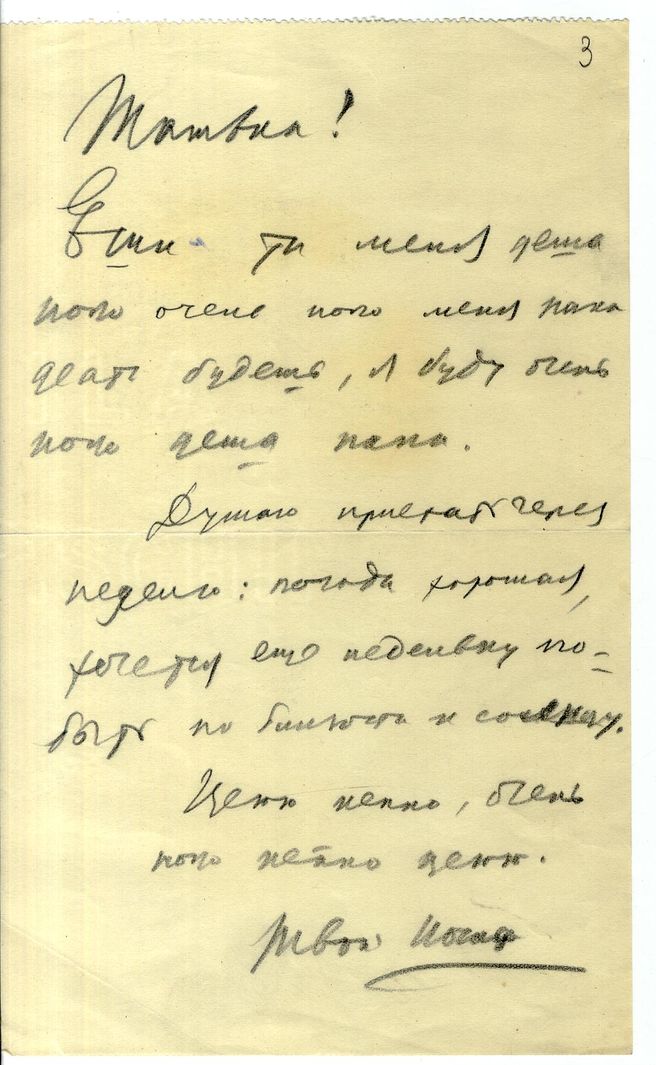 3
Татька!
Ешли ти меня цеша
ного очень ного меня пака
деать будешь, я буду очень
ного цеша пака.
Думаю приехать через
неделю: погода хорошая,
хочется еще недельку по-
быть по близости к солнцу.
Цеюю кепко, очень
ного кепко цеюю.
Твой